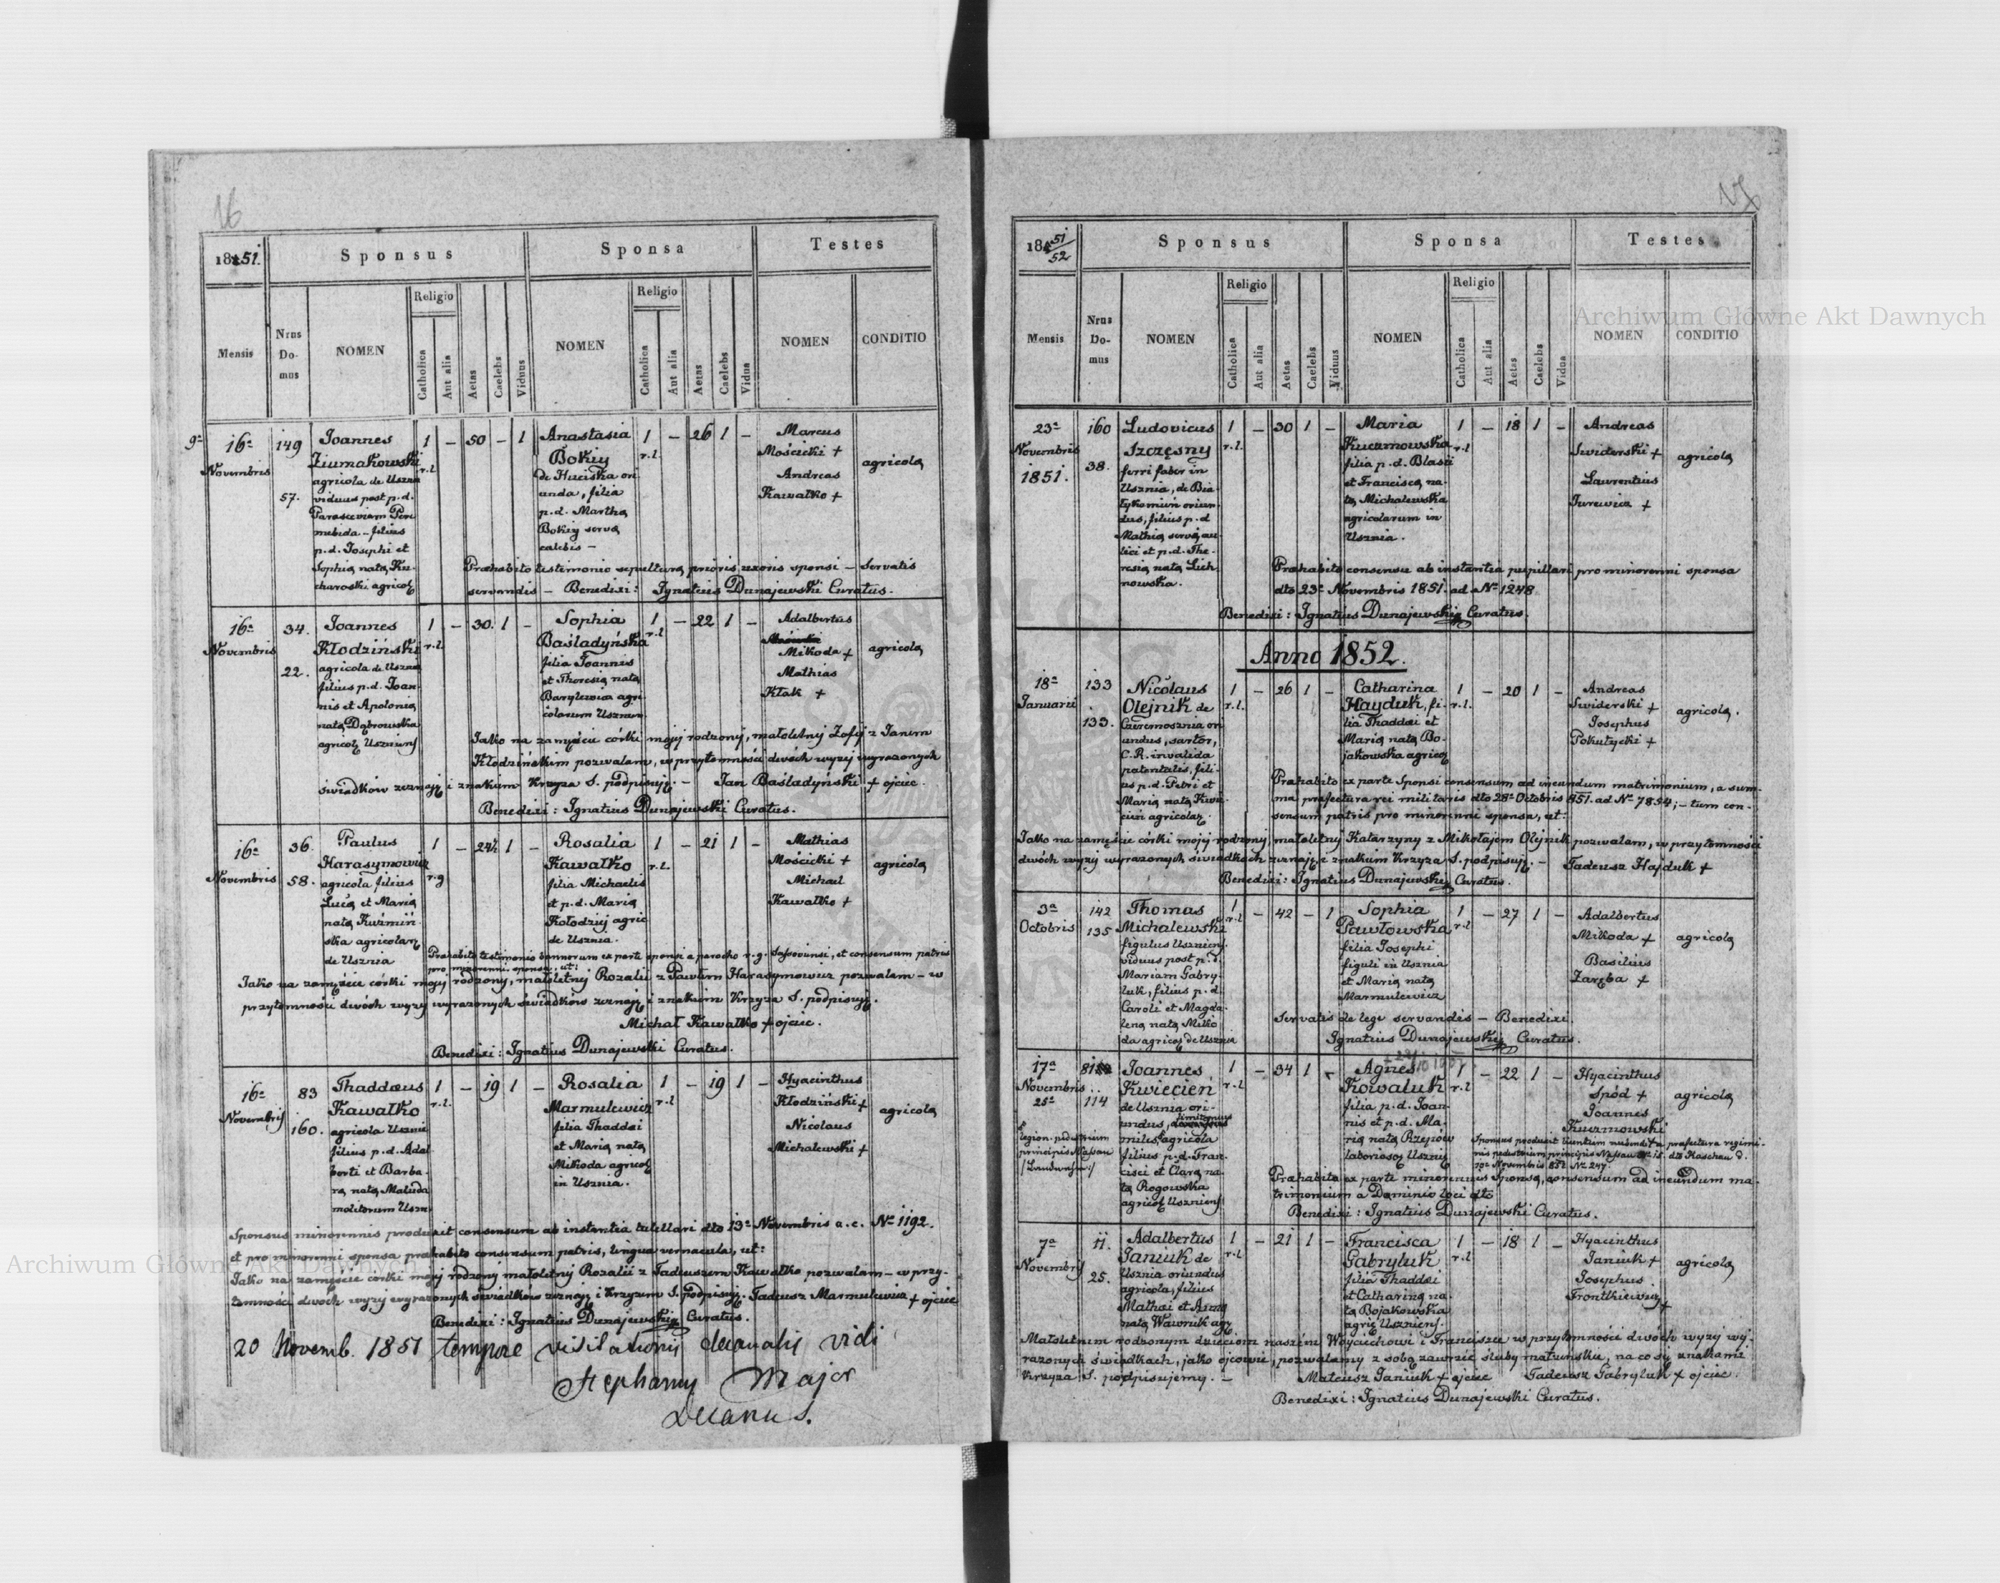 16
1851.
Sponsus
Sponsa
Testes
Mensis
Nrus
Do-
mus
NOMEN
Religio
Catholica
Aut alia
Aetas
Caelebs
Viduus
NOMEN
Religio
Catholica
Aut alia
Aetas
Caelebs
Vidua
NOMEN
CONDITIO
16a
Novembris
149
57.
Joannes
Ziumakowski
agricola de Usznia
viduus post p.d.
Parasceviam
filius
p.d. Josephi et
Sophia nata Ku-
charoski agricol.
1 r.l
–
50
–
1
Anastasia
Bokiy
de Huciska ori
unda, filia
p.d. Martha
Bokiy serva
calebis –
1 r.l.
–
26
1
–
Marcus
Mościcki +
Andreas
Kawałko +
agricola
Præhabito testimonio sepultura prioris uxoris sponsi – Servatis
servandis – Benedixi: Ignatius Dunajewski Curatus.
16a
Novembris
34.
22.
Joannes
Kłodziński
agricola de Usznia
filius p.d. Joan-
nis et Apolonia
nata Dąbrowska
agricol. Uszniens
1 r.l.
–
30.
1
–
Sophia
Baśladyńska
filia Joannis
et Theresia nata
Barylewicz agri-
colarum Uszniens
1 r.l
–
22
1
–
Adalbertus
Mikoda +
Mathias
Kłak +
agricola
Jako na zamęście córki mojej rodzonej, małoletniej Zofij z Janem
Kłodzińskim pozwalam, w przytomności dwóch wyzej wyrazonych
świadków zeznaję i znakiem Krzyza S. podpisuję. – Jan Baśladyński + ojciec.
Benedixi: Ignatius Dunajewski Curatus.
16a
Novembris
36.
58.
Paulus
Harasymowicz
agricola filius
Luca et Maria
nata Kuźmiń-
ska agricolar.
de Usznia
1 r.g
–
24½
1
–
Rosalia
Kawałko
filia Michaelis
et p.d. Maria
Kołodziej agric
de Usznia.
1 r.l.
–
21
1
–
Mathias
Mościcki +
Michael
Kawałko +
agricola
Præhabito testimonio bannorum ex parte sponsi a parocho r.g. Sassoviensi, et consensum patris
pro minorenni sponsa, ut:
Jako na zamęście córki mojej rodzonej, małoletniej Rozalii z Pawłem Harasymowicz pozwalam – w
przytomności dwóch wyzej wyrazonych świadków zeznaję i znakiem Krzyza S. podpisuję.
Michał Kawałko + ojciec.
Benedixi: Ignatius Dunajewski Curatus.
16a
Novembris
83
160.
Thaddæus
Kawałko
agricola Uszni
filius p.d. Adal
berti et Barba-
ra nata Maluda
molitorum Uszn
1 r.l.
–
19
1
–
Rosalia
Marmulewicz
filia Thaddæi
et Maria nata
Mikoda agricol
in Usznia.
1 r.l
–
19
1
–
Hyacinthus
Kłodziński +
Nicolaus
Michalewski +
agricola
Sponsus minorennis produxit consensum ab instantia tutellari dto 13a Novembris a.c. No 1192.
et pro minorenni sponsa præhabito consensum patris, lingua vernacula, ut:
Jako na zamęście córki mojej rodzonej małoletniej Rozalii z Tadeuszem Kawałko pozwalam – w przy-
tomności dwóch wyzej wyrazonych świadków zeznaję i Krzyzem S. podpisuję. Tadeusz Marmulewicz + ojciec
Benedixi: Ignatius Dunajewski Curatus.
20 Novemb. 1851 tempore visitationis decanalis vidi
Stephanus Major
Decanus.
1851/52
Sponsus
Sponsa
Testes
Mensis
Nrus
Do-
mus
NOMEN
Religio
Catholica
Aut alia
Aetas
Caelebs
Viduus
NOMEN
Religio
Catholica
Aut alia
Aetas
Caelebs
Vidua
NOMEN
CONDITIO
23a
Novembris
1851.
160
38.
Ludovicus
Szczęsny
ferri faber in
Usznia, de Bia-
łykomin oriun-
dus, filius p.d
Mathia servi au-
lici et p.d. The-
resia nata Lich-
nowska.
1 r.l.
–
30
1
–
Maria
Kuczmowska
filia p.d. Blasii
et Francisca na-
ta Michalewska
agricolarum in
Usznia.
1 r.l
–
18
1
–
Andreas
Swiderski +
Laurentius
Jurewicz +
agricola
Præhabito consensu ab instantia pupillari pro minorenni sponsa
dto 23a Novembris 1851. ad No 1248
Benedixi: Ignatius Dunajewski Curatus.
Anno 1852.
18a
Januarii
133
133.
Nicolaus
Olejnik de
Czeremosznia ori
undus, sartor,
C.R. invalida
patentalis, fili-
us p.d. Petri et
Maria nata Kwie-
cien agricolar.
1 r.l.
–
26
1
–
Catharina
Hayduk, fi-
lia Thaddæi et
Maria nata Bo-
jakowska agricol.
1 r.l.
–
20
1
–
Andreas
Swiderski +
Josephus
Pokutycki +
agricola.
Præhabito ex parte Sponsi consensum ad ineundum matrimonium, a sum-
ma præfectura rei militaris dto 28a Octobris 851. ad No 7854; – tum con-
sensum patris pro minorenni sponsa, ut:
Jako na zamęście córki mojej rodzonej, małoletniej Katarzyny z Mikołajem Olejnik pozwalam, w przytomności
dwóch wyzej wyrazonych świadkach zeznaję i znakiem Krzyza S. podpisuję. – Tadeusz Hajduk +
Benedixi: Ignatius Dunajewski Curatus.
3a
Octobris
142
135
Thomas
Michalewski
figulus Uszniens.
viduus post p.d.
Mariam Gabry-
luk, filius p.d.
Caroli et Magda-
lena nata Miko-
da agricol. de Usznia
1 r.l
–
42
–
1
Sophia
Pawłowska
filia Josephi
figuli in Usznia
et Maria nata
Marmulewicz
1 r.l
–
27
1
–
Adalbertus
Mikoda +
Basilius
Zaręba +
agricola
Servatis de lege servandis – Benedixi.
Ignatius Dunajewski Curatus.
17a
Novembris
25a
114
Joannes
Kwiecien
de Usznia ori-
undus,
miles, agricola
filius p.d. Fran-
cisci et Clara na-
ta Rogowska
agricol Uszniens
legion. pedestrium
principis Nassau
/Landwehr/
1 r.l
–
34
1
–
Agnes
Kowaluk
filia p.d. Joan-
nis et p.d. Ma-
ria nata Rzepiów
laborioso Uszniens
1 r.l
–
22
1
–
Hyacinthus
Spód +
Joannes
Kuczmowski
agricola
Præhabito ex parte minorennis sponsa, consensum ad ineundum ma-
trimonium a Dominio loci dto
Benedixi: Ignatius Dunajewski Curatus.
7a
Novembris
11.
25.
Adalbertus
Janiuk de
Usznia oriundus
agricola, filius
Mathæi et Anna
nata Wawnik agr.
1 r.l
–
21
1
–
Francisca
Gabryluk
filia Thaddæi
et Catharina na-
ta Bojakowska
agric Uszniens.
1 r.l
–
18
1
–
Hyacinthus
Janiuk +
Josephus
Frontkiewicz +
agricola
Małoletnim rodzonym dzieciom naszém Woyciechowi i Franciszce w przytomności dwóch wyzej wy-
razonych świadkach, jako ojcowie, pozwalamy z sobą zawrzeć śluby małżeńskie, na co się znakami
Krzyza S. podpisujemy. – Mateusz Janiuk + ojciec Tadeusz Gabryluk + ojciec.
Benedixi: Ignatius Dunajewski Curatus.
Archiwum Główne Akt Dawnych
Archiwum Główne Akt Dawnych